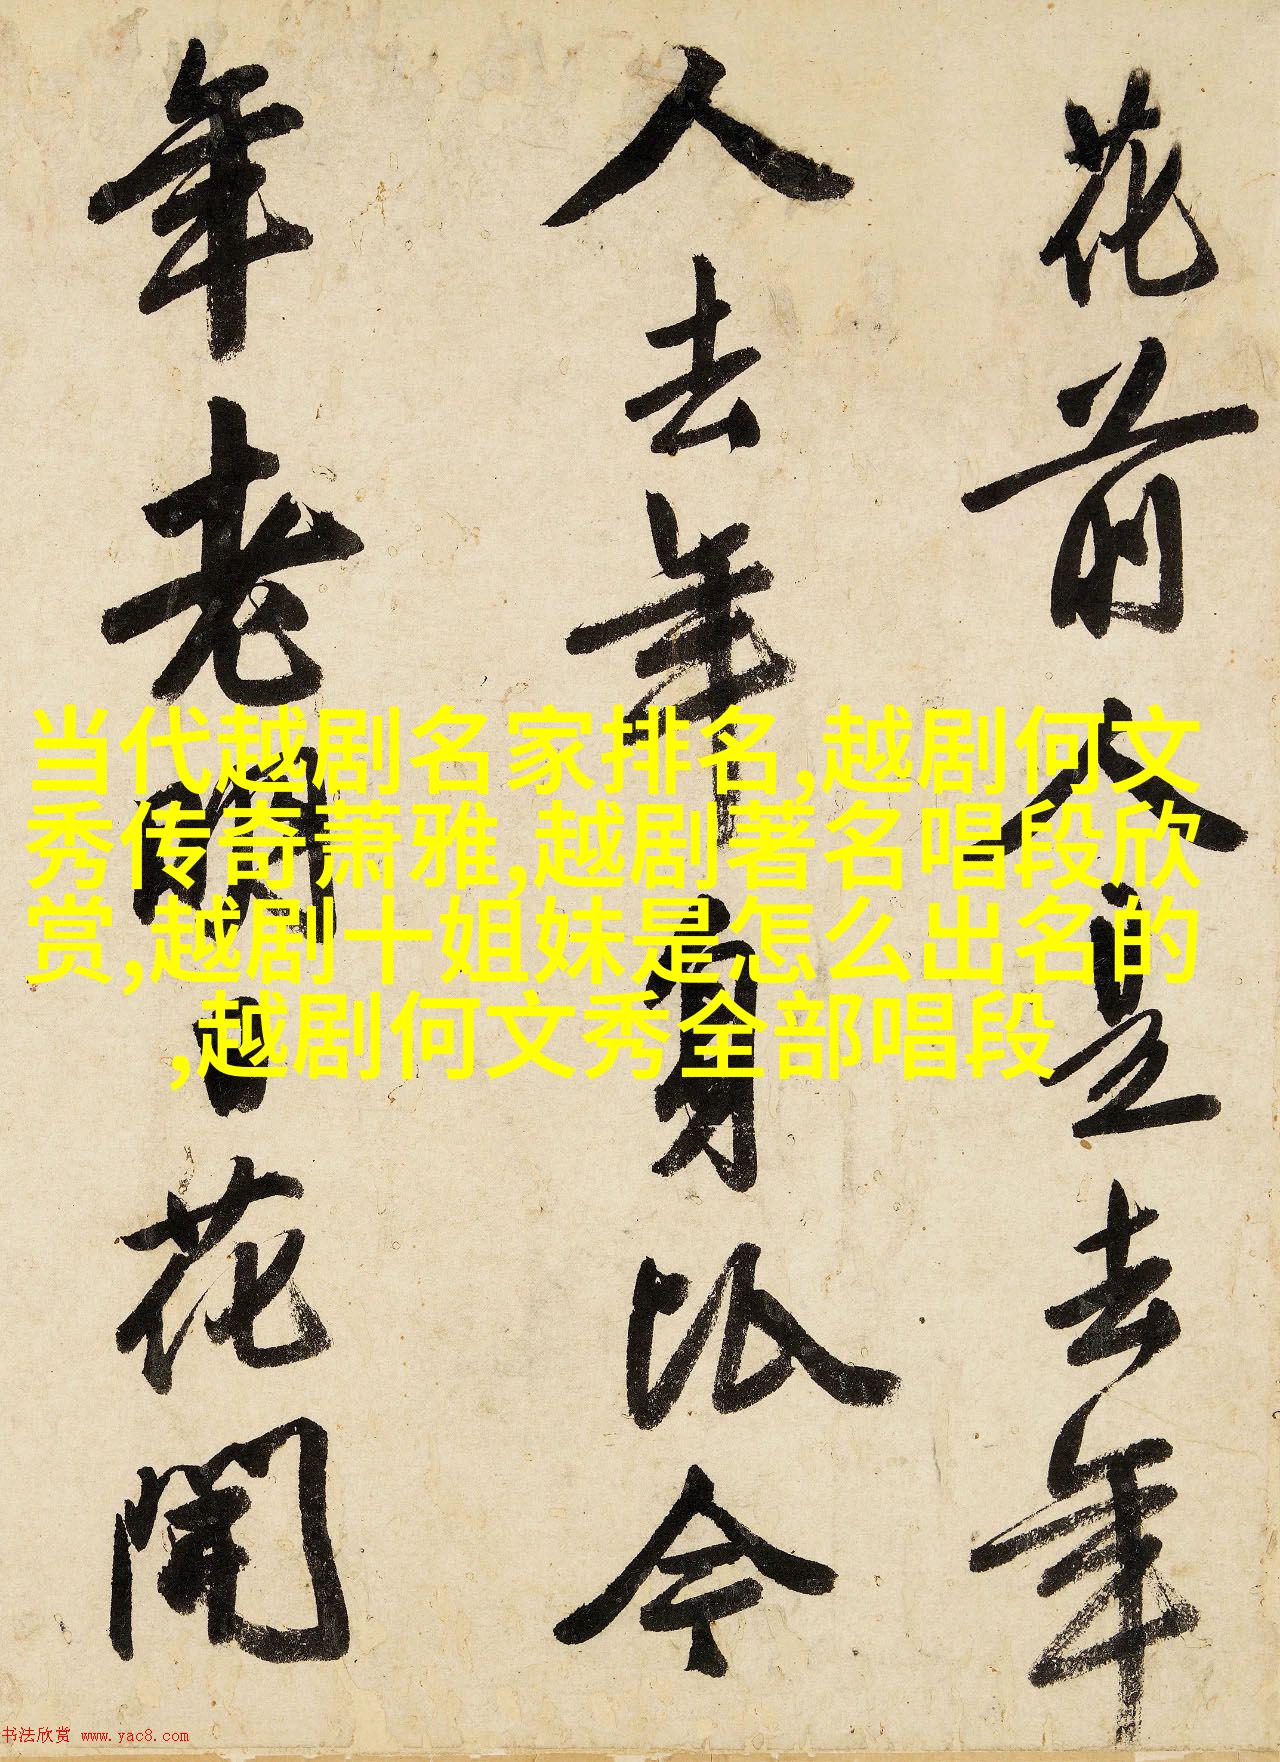 花前人是去年
人去年身比今
年老明日花開
当代越剧名家排名,越剧何文
秀传奇萧雅,越剧著名唱段欣
赏,越剧十姐妹是怎么出名的
,越剧何文秀全部唱段
书法欣赏 www.yac8.com